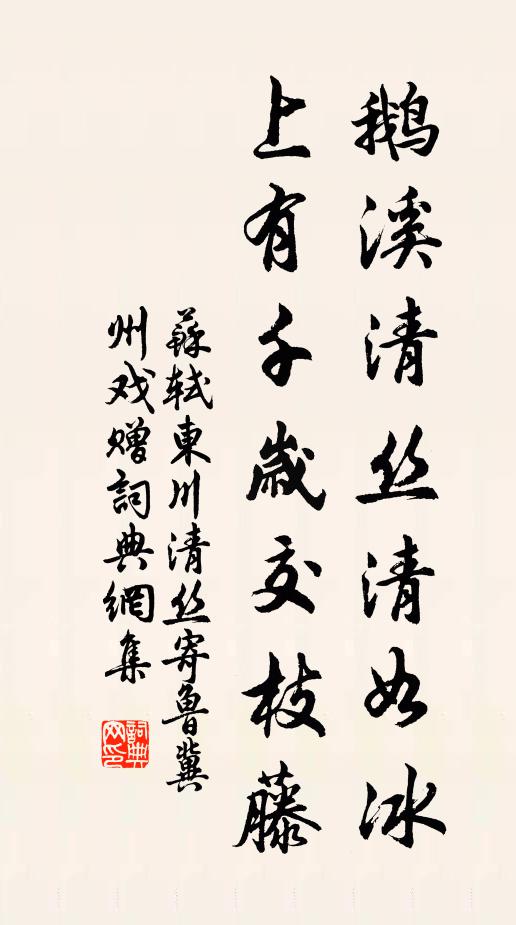 鹅溪清丝清如冰
上有千歲交枝藤
蘇軾東川清丝寄魯冀
州戏赠詞典網集
詞典网印